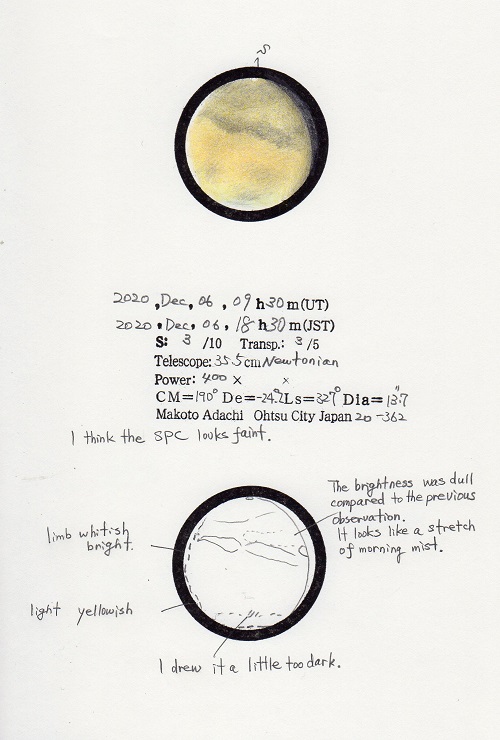 S
2020, Dec, 06, 09 h 30 m (UT)
2020, Dec, 06, 18 h 30 m (JST)
S: 3 /10 Transp.: 3 /5
Telescope: 35.5 cm Newtonian
Power: 400 × ×
CM=190° De=-24.2 Ls=327° Dia=13.7"
Makoto Adachi Ohtsu City Japan 20-362
I think the SPC looks faint.
The brightness was dull
compared to the previous
observation.
It looks like a stretch
of morning mist.
limb whitish
bright.
light yellowish
I drew it a little too dark.